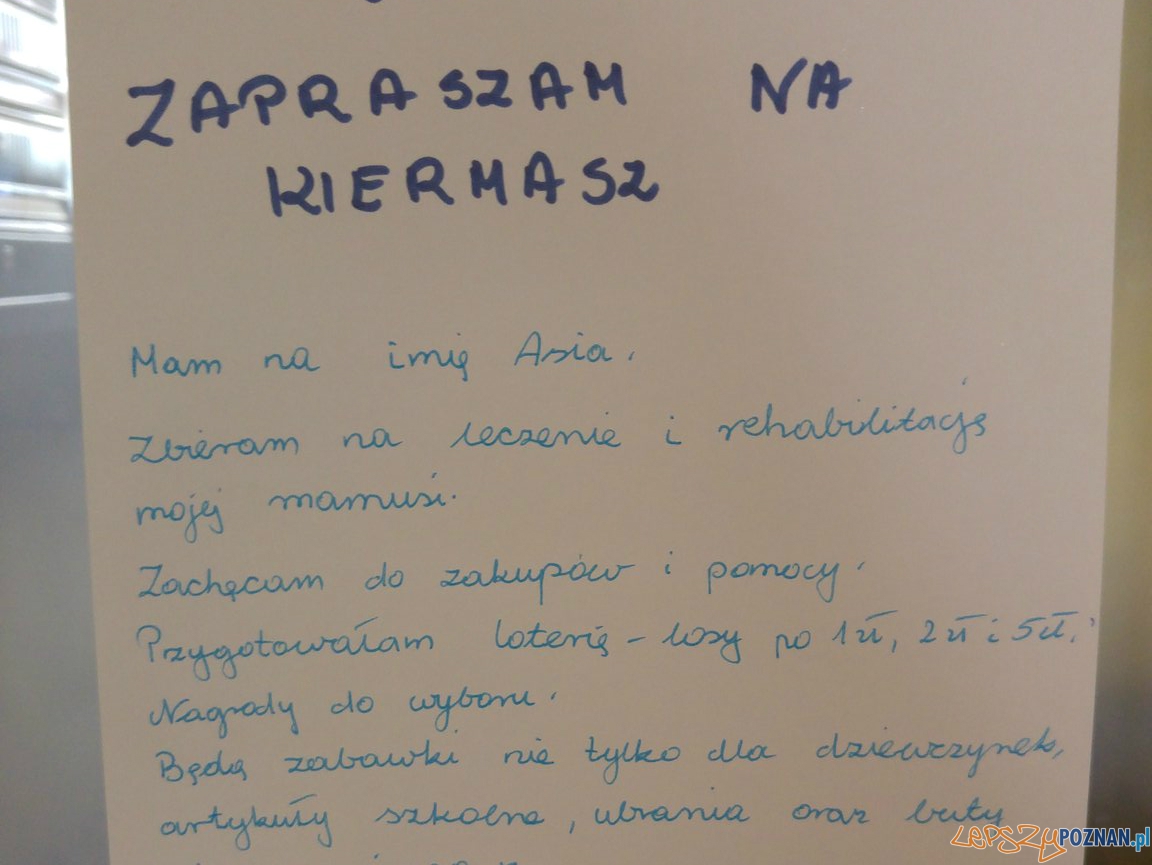 ZAPRASZAM NA
KIERMASZ
Mam na imię Asia.
Zbieram na leczenie i rehabilitację
mojej mamusi.
Zachęcam do zakupów i pomocy.
Przygotowałam loterię - losy po 1 zł, 2 zł i 5 zł.
Nagrody do wyboru.
Będą zabawki nie tylko dla dziewczynek,
artykuły szkolne, ubrania oraz buty
LEPSZYPOZNAN.pl